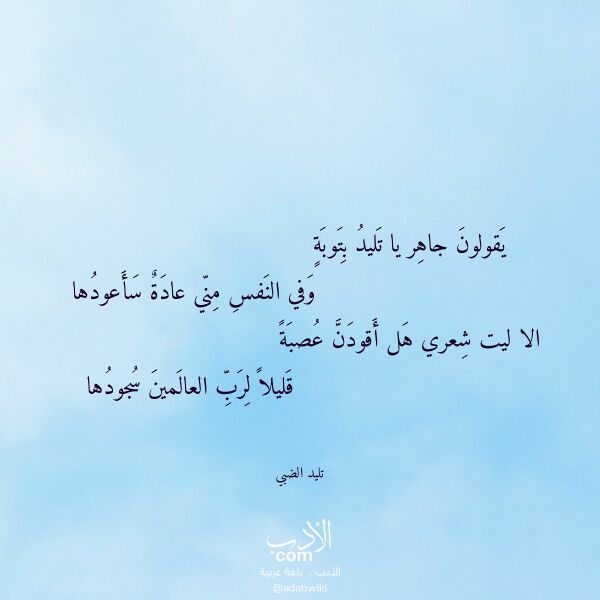 يَقولونَ جاهِر يا تَليدُ بِتَوبَةٍ
وَفي النَفسِ مِنّي عادَةٌ سَأَعودُها
الا ليت شِعري هَل أَقودَنَّ عُصبَةً
قَليلاً لِرَبِّ العالَمينَ سُجودُها
تليد الضبي
الأدب
com
الأدب .. بلغة عربية
@adabwiki